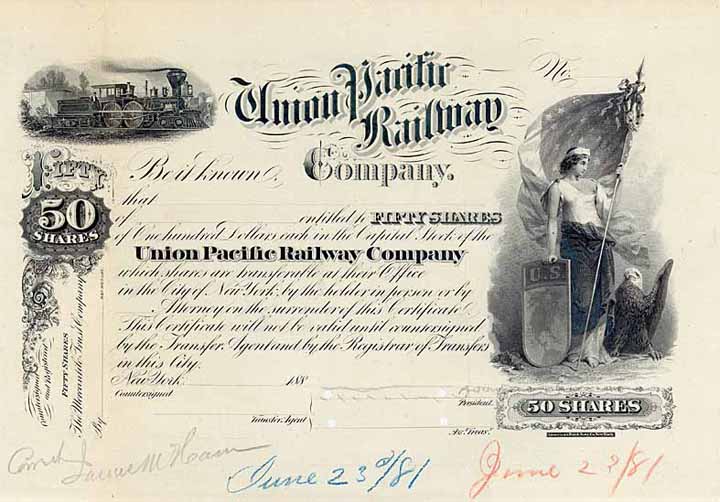 Union Pacific
Railway
Company.
No.
FIFTY
50
SHARES
Be it known,
that
of entitled to FIFTY SHARES
of One hundred Dollars each in the Capital Stock of the
Union Pacific Railway Company
which shares are transferable at their Office
in the City of New York, by the holder in person or by
Attorney on the surrender of this Certificate.
This Certificate will not be valid until countersigned
by the Transfer Agent and by the Registrar of Transfers
in this City.
New York 188
Countersigned
President.
Transfer Agent
Treas.
U.S.
50 SHARES
Countersigned and Registered
FIFTY SHARES
The Mercantile Trust Company
By
June 23d/81
June 23/81